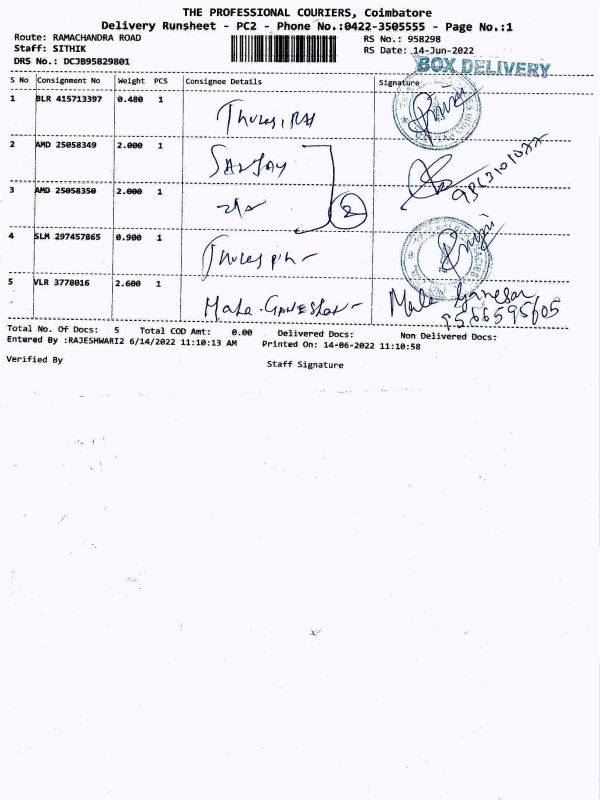 THE PROFESSIONAL COURIERS, Coimbatore
Delivery Runsheet - PC2 - Phone No.:0422-3505555 - Page No.:1
Route: RAMACHANDRA ROAD RS No.: 958298
Staff: SITHIK RS Date: 14-Jun-2022
DRS No.: DCJB95829801
BOX DELIVERY
S No Consignment No Weight PCS Consignee Details Signature
1 BLR 415713397 0.480 1
2 AMD 25058349 2.000 1
SANJAY
3 AMD 25058350 2.000 1
2
4 SLM 297457865 0.900 1
5 VLR 3778016 2.600 1
Mala Ganesan
Total No. Of Docs: 5 Total COD Amt: 0.00 Delivered Docs: Non Delivered Docs:
Entered By :RAJESHWARI2 6/14/2022 11:10:13 AM Printed On: 14-06-2022 11:10:58
Verified By Staff Signature